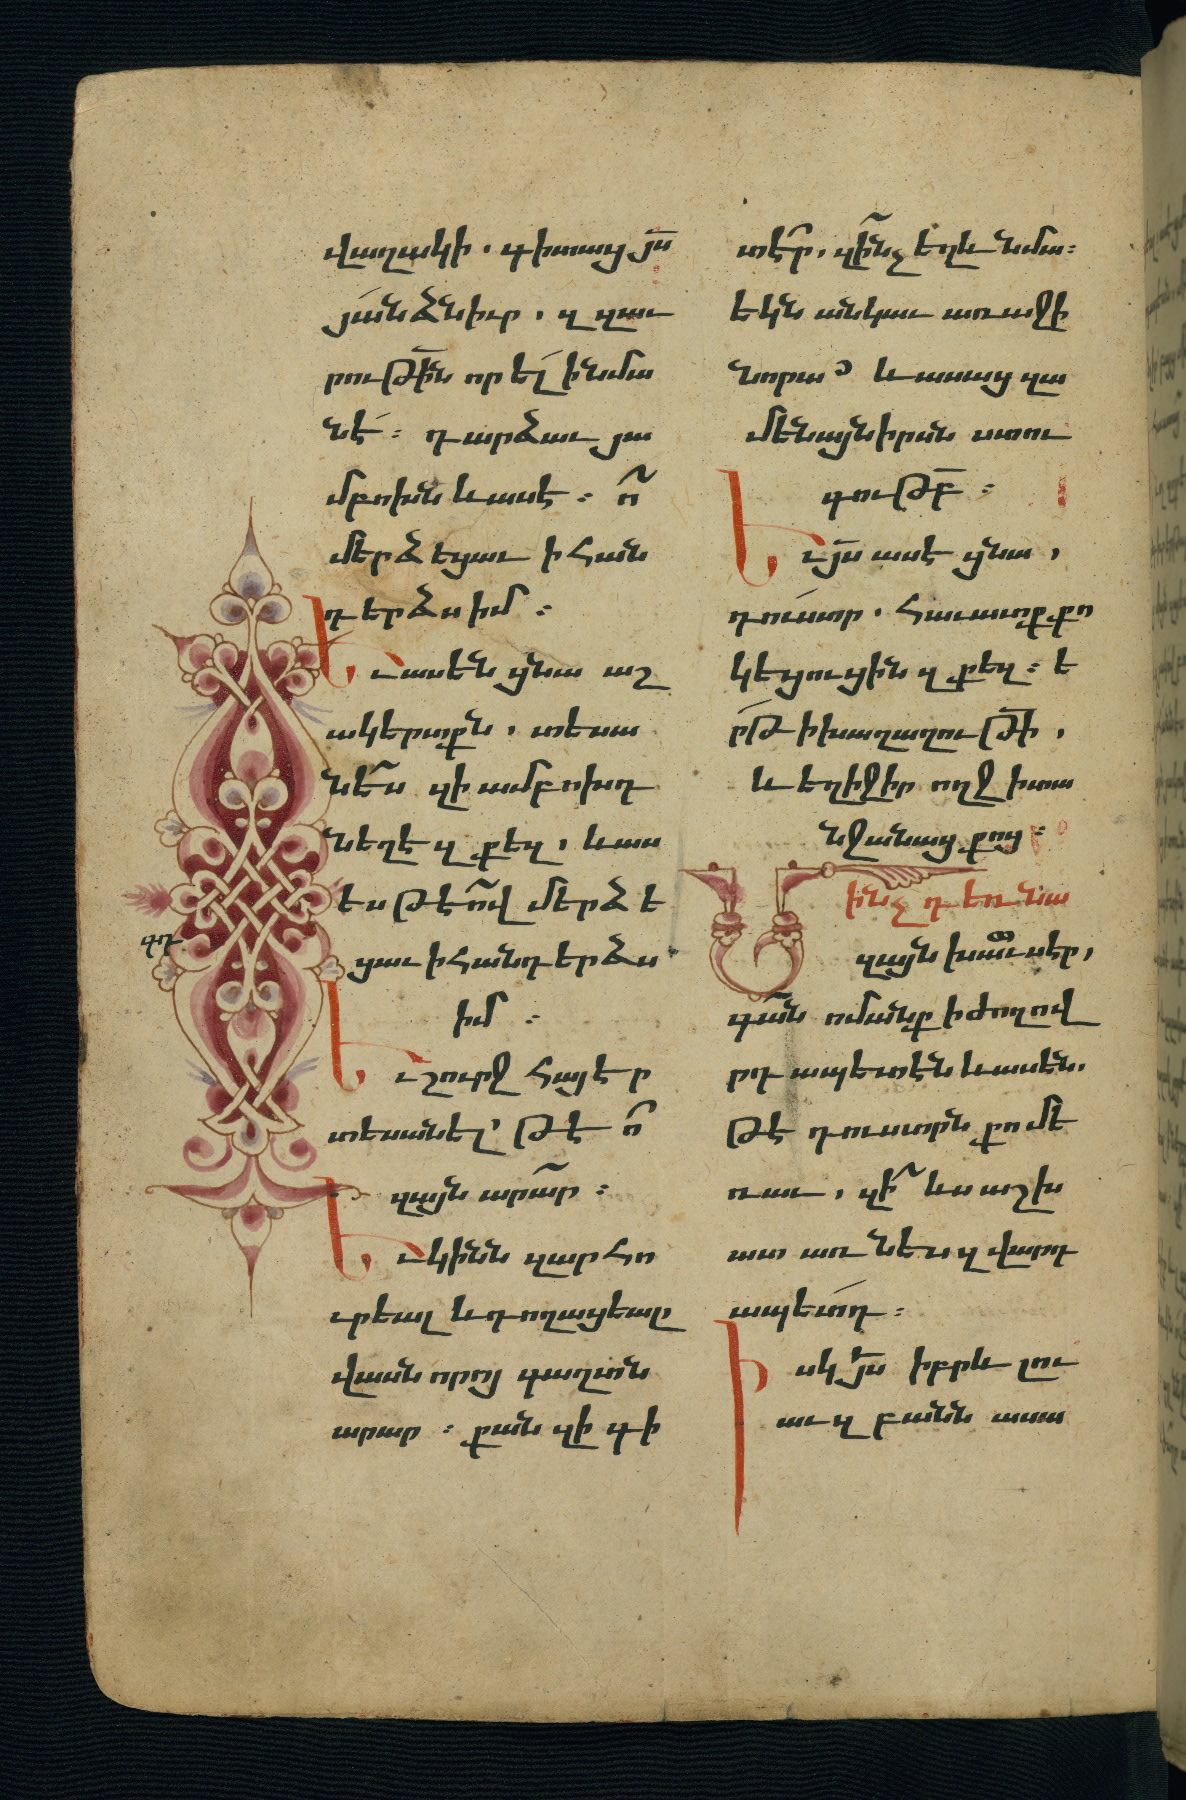 վաղակի. գիտաց յս
յանձնիւր, զ զաւ
րութին որ ել ի նմա
նէ։ դարձաւ յա
մբոխն և ասէ։ ո՞
մերձեցաւ ի հան
դերձս իմ։
Եւ ասեն ցնա աշ
ակերտքն, տեսա
նես զի ամբոխդ
նեղէ զ քեզ, և աս
ես թէ ով մերձե
ցաւ ի հանդերձս
իմ։
Եւ շուրջ հայէր
տեսանել՝ թէ ո՞
զայն արար։
Եւ կինն զարհո
ւրեալ և դողացեալ
վասն որոյ գաղտն
արար։ քան զի գի
գդ
տէր, զինչ եղև նմա։
եկն անկաւ առաջի
նորա՝ և ասաց զա
մենայն իրան ստու
գութբ։
Եւ յս ասէ ցնա,
դուստր. հաւատք քո
կեցուցին զ քեզ։ ե
րթ ի խաղաղութի,
և եղիջիր ողջ ի տա
նջանաց քոց։
Մինչ դեռ նա
զայն խաւսէր,
գան ոմանք ի ժողով
րդապետէն և ասեն.
թէ դուստրն քո մե
ռաւ, զի՞ ևս աշխ
ատ առնես զ վարդ
ապետդ։
Իսկ յս իբրև լու
աւ զ բանն ասա